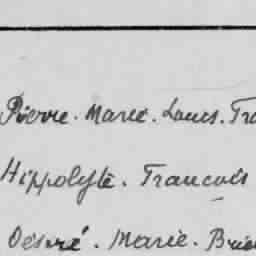 Pierre. Marie. Louis. Fra
Hippolyte. Francois
Désiré. Marie. Brie